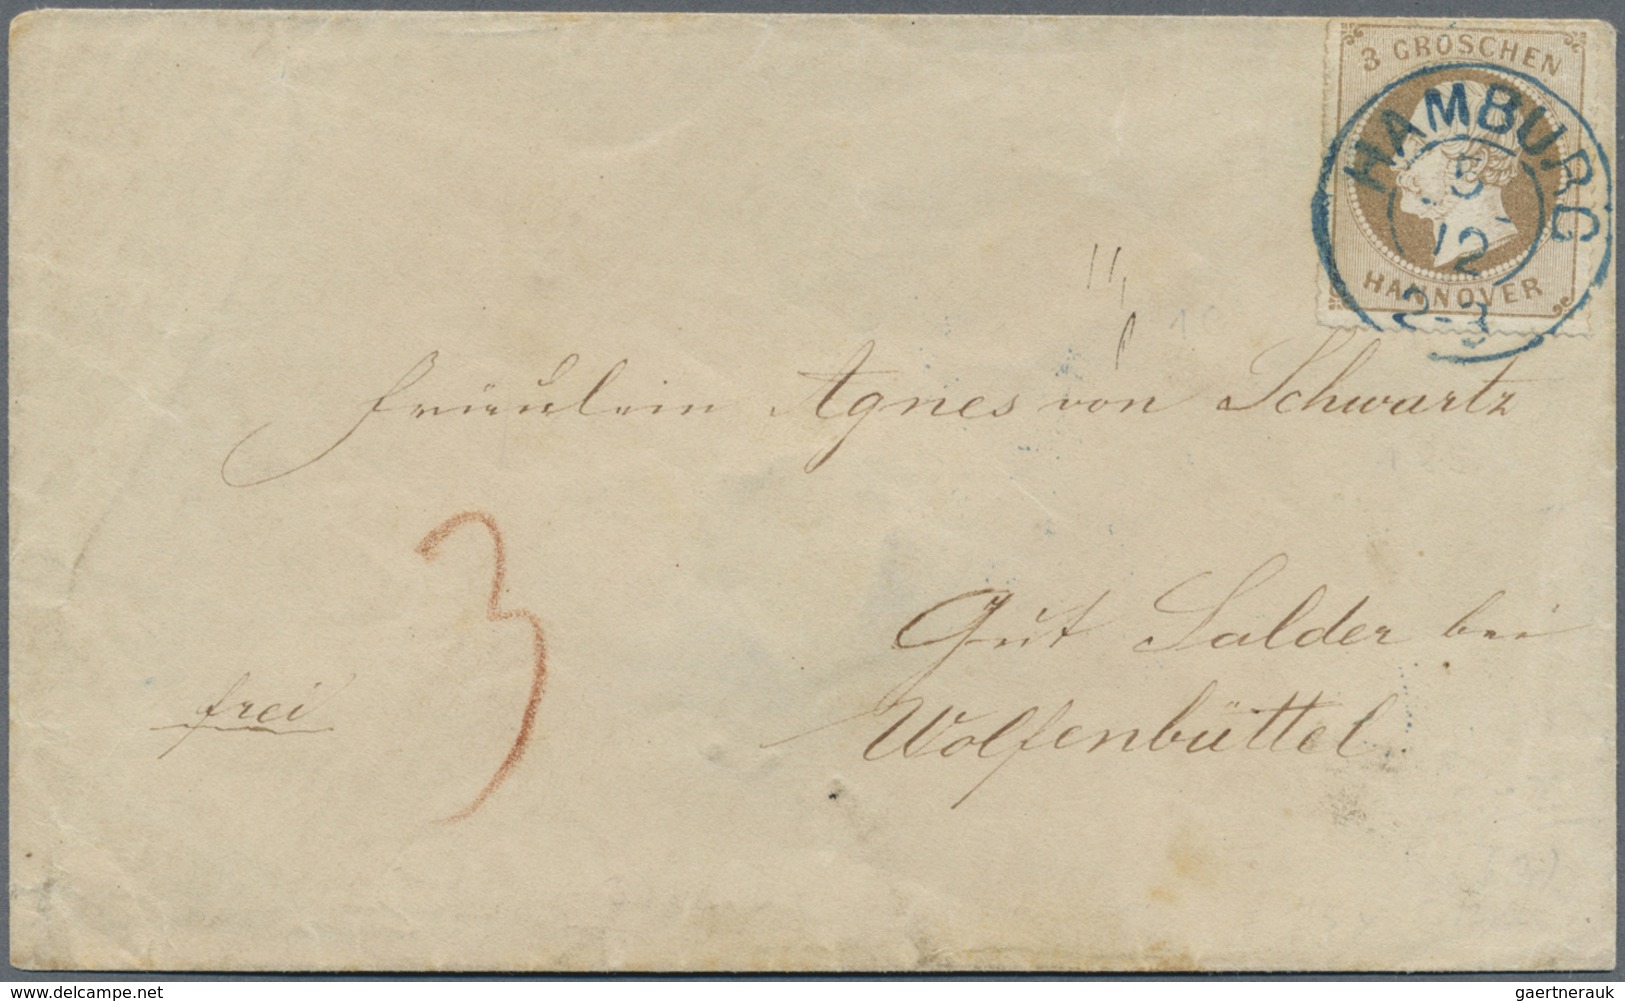 3 GROSCHEN
HAMBURG
5
12
HANNOVER
2-3
Fräulein Agnes von Schwartz
3
Gut Salder bei
frei
Wolfenbüttel.
www.delcampe.net
gaertnerauk